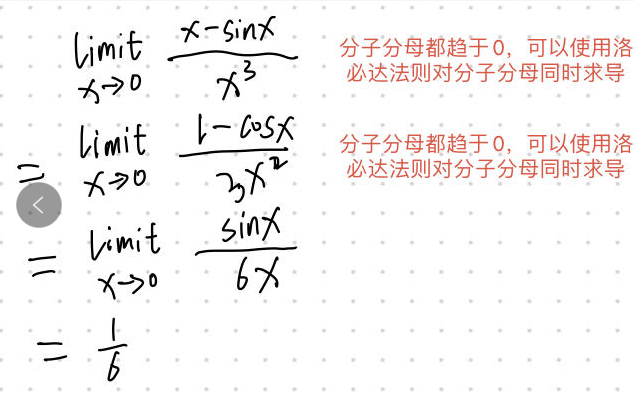 limit x→0 (x-sinx)/x³
分子分母都趋于0，可以使用洛
必达法则对分子分母同时求导
= limit x→0 (1-cosx)/3x²
分子分母都趋于0，可以使用洛
必达法则对分子分母同时求导
= limit x→0 sinx/6x
= 1/6